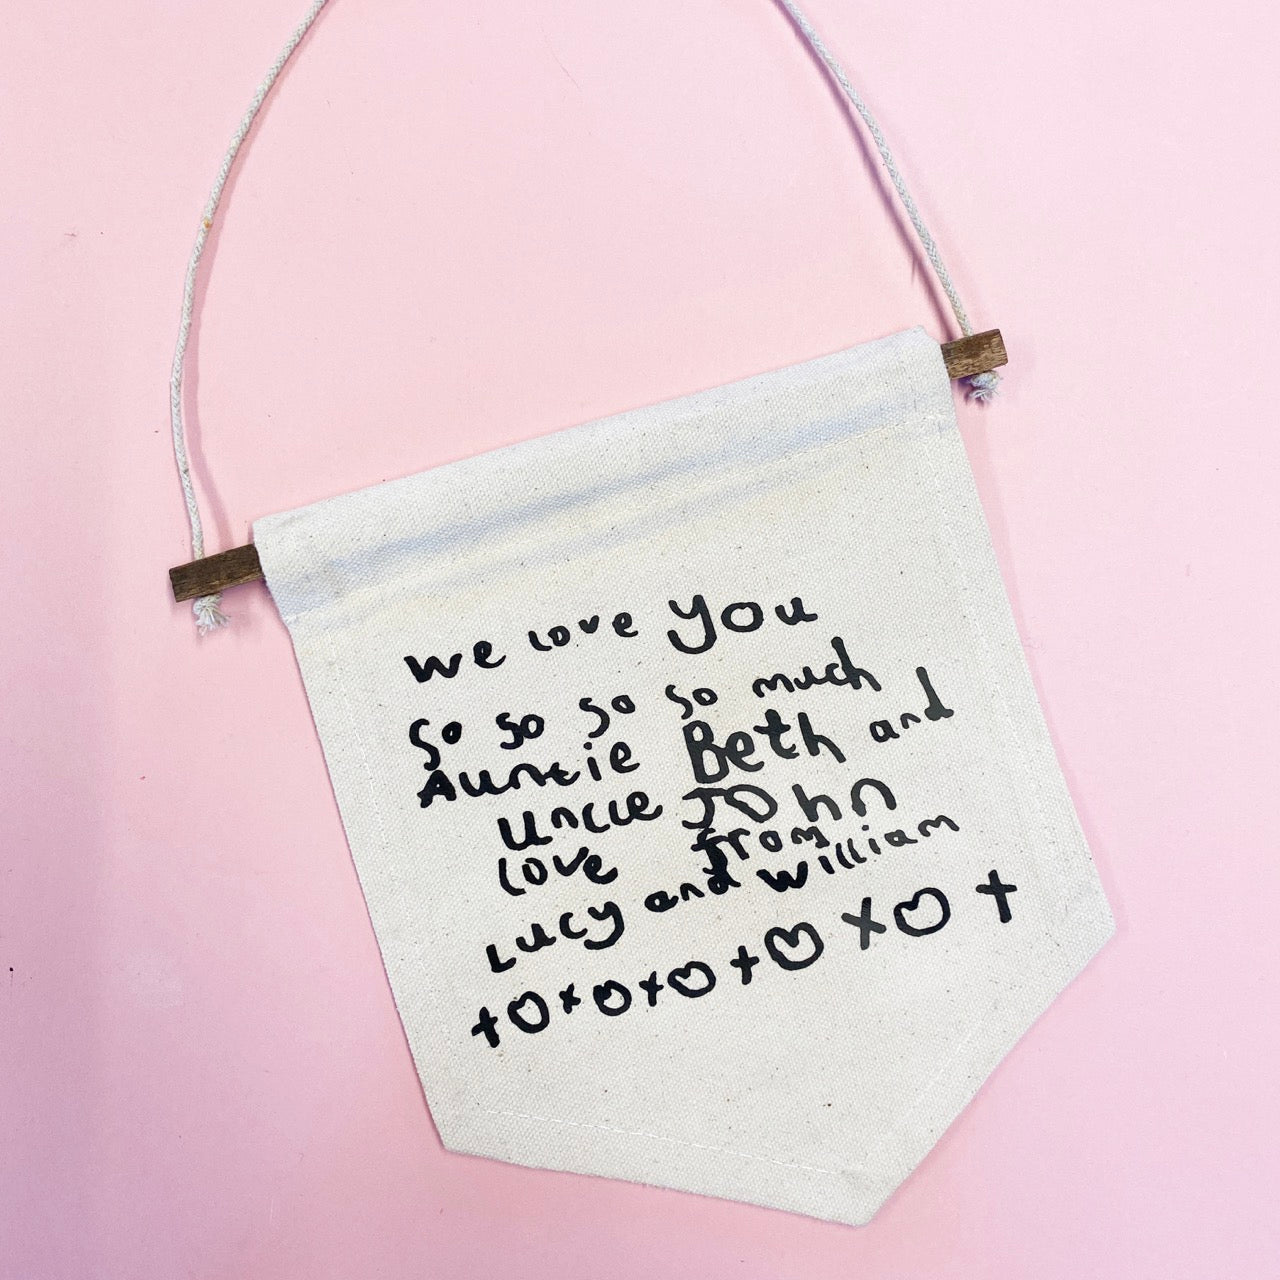 we love you
so so so so much
Auntie Beth and
uncle JOhn
love from
Lucy and william
+O×O×O+O×O+